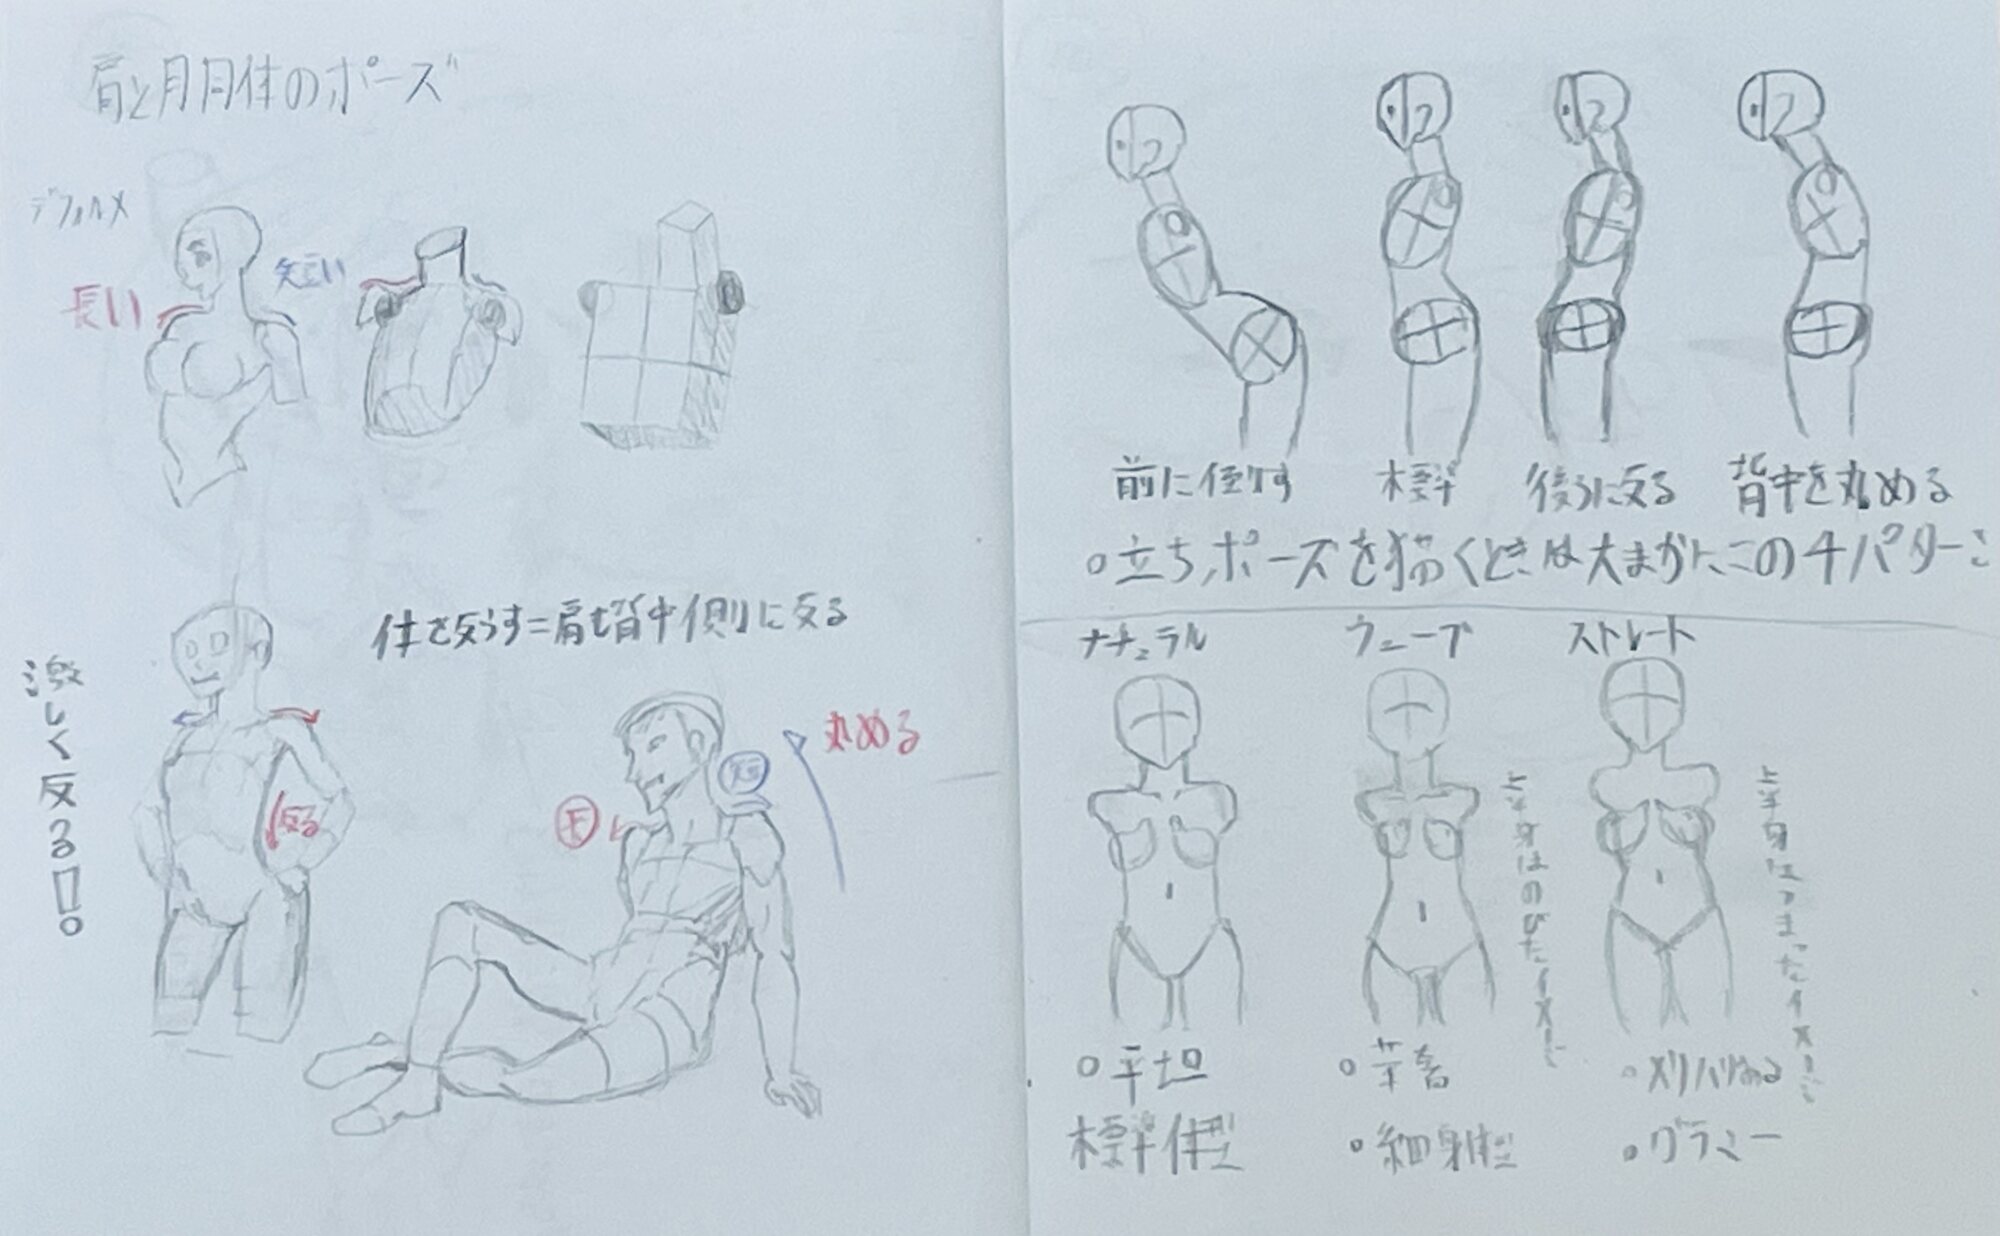 肩と胴体のポーズ
デフォルメ
長い
短い
体を反らす=肩も背中側に反る
激しく反る!!。
反る
長
短
丸める
前に倒す
標準
後ろに反る
背中を丸める
○立ちポーズを描くときは大まかにこの4パターン
ナチュラル
ウェーブ
ストレート
上半身はのびたイメージ
上半身はつまったイメージ
○平坦
標準体型
○華奢
○細身体型
○メリハリある
○グラミー